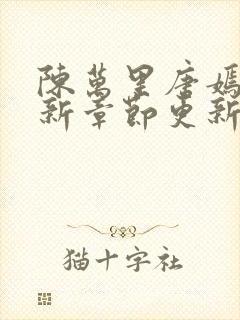 陳萬里唐嫣
新章節更新
猫十字社